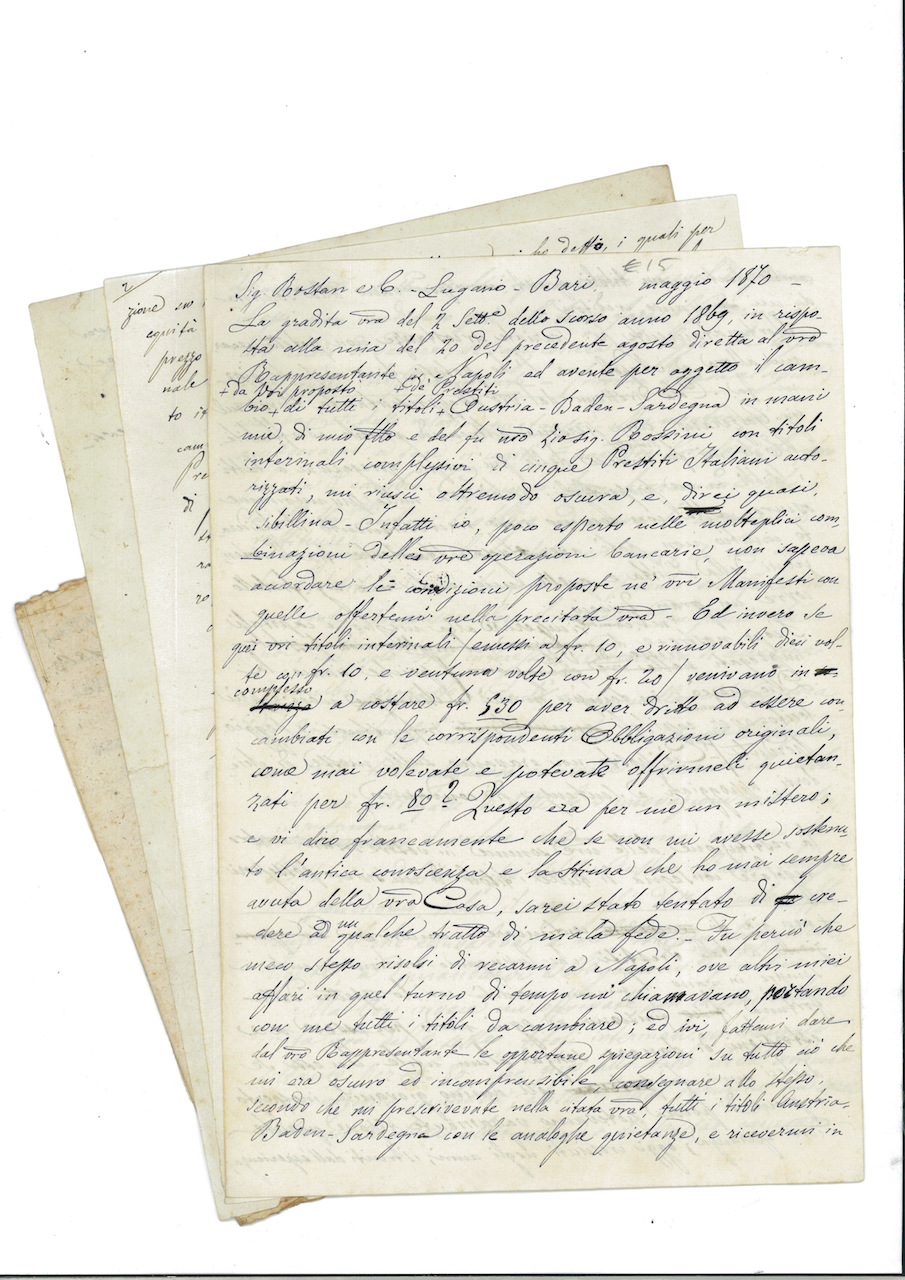 €15
Sig. Rostan e C. - Lugano - Bari maggio 1870 -
La gradita vra del 2 Sett.e dello scorso anno 1869, in rispo-
sta alla mia del 20 del precedente agosto diretta al vro
Rappresentante in Napoli ed avente per oggetto il cam-
+ da Voi proposto + de' Prestiti
bio + di tutti i titoli + Austria - Baden - Sardegna in mani
mie, di mio fllo e del fu nro zio sig. Rossini con titoli
interinali complessivi di cinque Prestiti Italiani auto-
rizzati, mi riuscì oltremodo oscura, e, direi quasi,
sibillina - Infatti io, poco esperto nelle molteplici com
binazioni delle vre operazioni bancarie, non sapeva
accordare le condizioni proposte ne' vri Manifesti con
quelle offertemi nella precitata vra - Ed invero se
quei vri titoli interinali / emessi a fr. 10, e rinnovabili dieci vol-
te con fr. 10, e ventuna volte con fr. 20 / venivano in
complesso
a costare fr. 530 per aver dritto ad essere con-
cambiati con le corrispondenti Obbligazioni originali,
come mai volevate e potevate offrirmeli quietan-
zati per fr. 80? Questo era per me un mistero;
e vi dico francamente che se non mi avesse sostenu-
to l'antica conoscenza e la stima che ho mai sempre
avuta della vra Casa, sarei stato tentato di cre-
dere ad un qualche tratto di mala fede. - Fu perciò che
meco stesso risolsi di recarmi a Napoli, ove altri miei
affari in quel turno di tempo mi chiamavano, portando
con me tutti i titoli da cambiare; ed ivi, fattemi dare
dal vro Rappresentante le opportune spiegazioni su tutto ciò che
mi era oscuro ed incomprensibile, consegnare allo stesso,
secondo che mi prescrivevate nella citata vra, tutti i titoli Austria-
Baden-Sardegna con le analoghe quietanze, e ricevermi in
2
ho detto, i quali per
zione su
equità
prezzo
nale
to it
cam
Pre
di